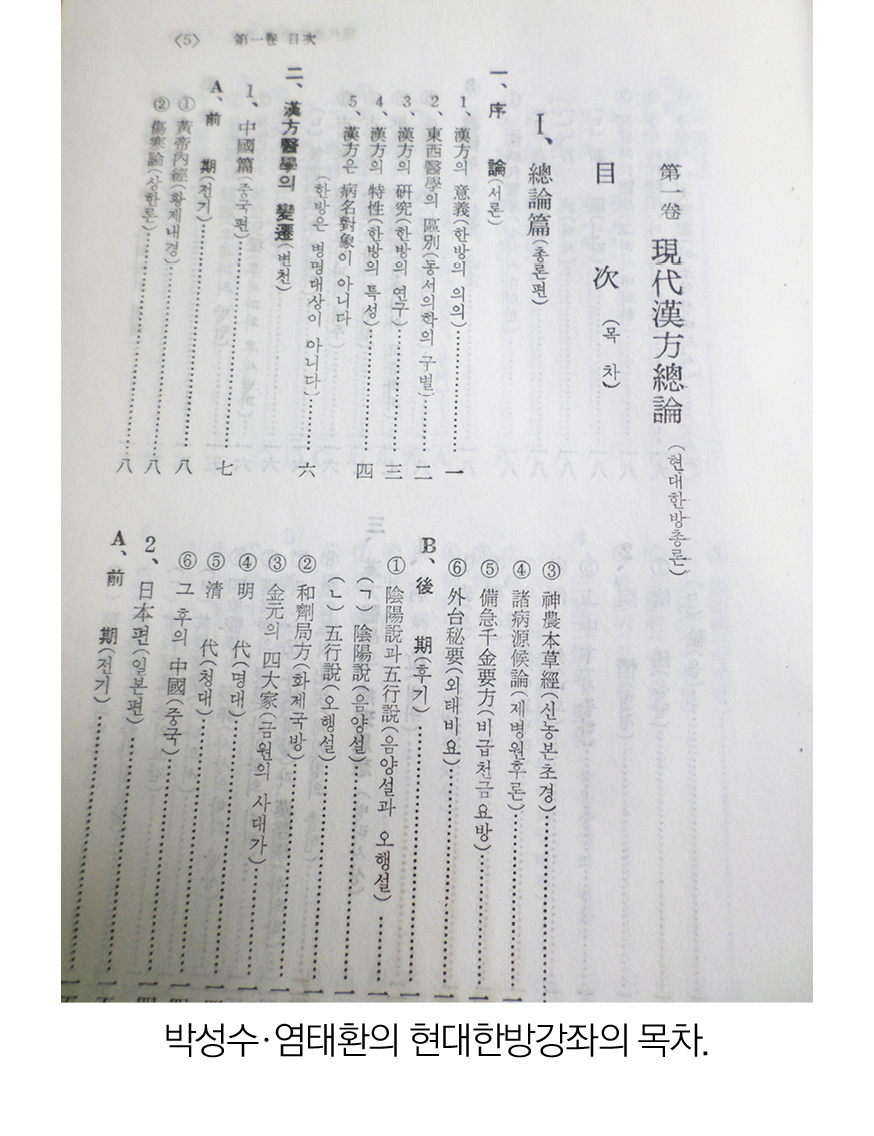 〈5〉 第一卷 目次
第一卷 現代漢方總論 (현대한방총론)
目 次 (목 차)
I、總論篇(총론편)
一、序 論(서론)
1、漢方의 意義(한방의 의의)……一
2、東西醫學의 區別(동서의학의 구별)……二
3、漢方의 研究(한방의 연구)……三
4、漢方의 特性(한방의 특성)……四
5、漢方은 病名對象이 아니다
(한방은 병명대상이 아니다)……六
二、漢方醫學의 變遷(변천)
1、中國篇(중국편)……七
A、前 期(전기)……八
① 黃帝內經(황제내경)……八
② 傷寒論(상한론)……八
③ 神農本草經(신농본초경)……
④ 諸病源候論(제병원후론)……
⑤ 備急千金要方(비급천금요방)……
⑥ 外台秘要(외태비요)……
B、後 期(후기)……
① 陰陽說과 五行說(음양설과 오행설)……
(ㄱ) 陰陽說(음양설)……
(ㄴ) 五行說(오행설)……
② 和劑局方(화제국방)……
③ 金元의 四大家(금원의 사대가)……
④ 明 代(명대)……
⑤ 清 代(청대)……
⑥ 그 후의 中國(중국)……
2、日本편(일본편)……
A、前 期(전기)……
박성수·염태환의 현대한방강좌의 목차.